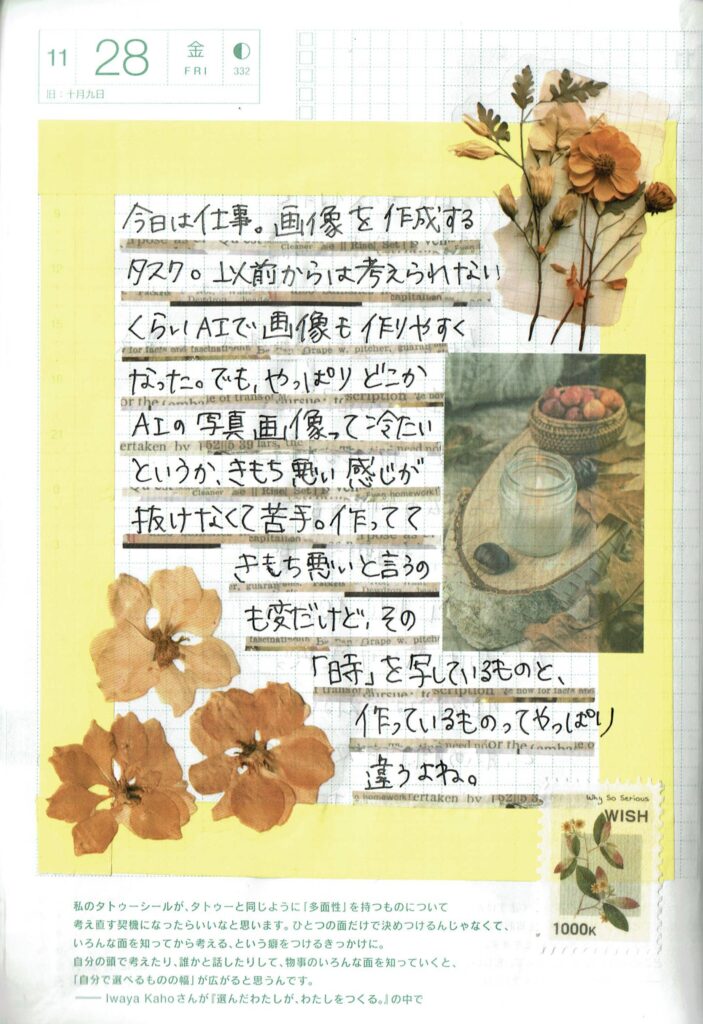 11
28
金
FRI
332
旧：十月九日
今日は仕事。画像を作成する
タスク。以前からは考えられない
くらいAIで画像も作りやすく
なった。でも、やっぱりどこか
AIの写真画像って冷たい
というか、きもち悪い感じが
抜けなくて苦手。作ってて
きもち悪いと言うの
も変だけど、その
「時」を写しているものと、
作っているものってやっぱり
違うよね。
Why So Serious
WISH
1000K
私のタトゥーシールが、タトゥーと同じように「多面性」を持つものについて
考え直す契機になったらいいなと思います。ひとつの面だけで決めつけるんじゃなくて、
いろんな面を知ってから考える、という癖をつけるきっかけに。
自分の頭で考えたり、誰かと話したりして、物事のいろんな面を知っていくと、
「自分で選べるものの幅」が広がると思うんです。
—— Iwaya Kahoさんが『選んだわたしが、わたしをつくる。』の中で